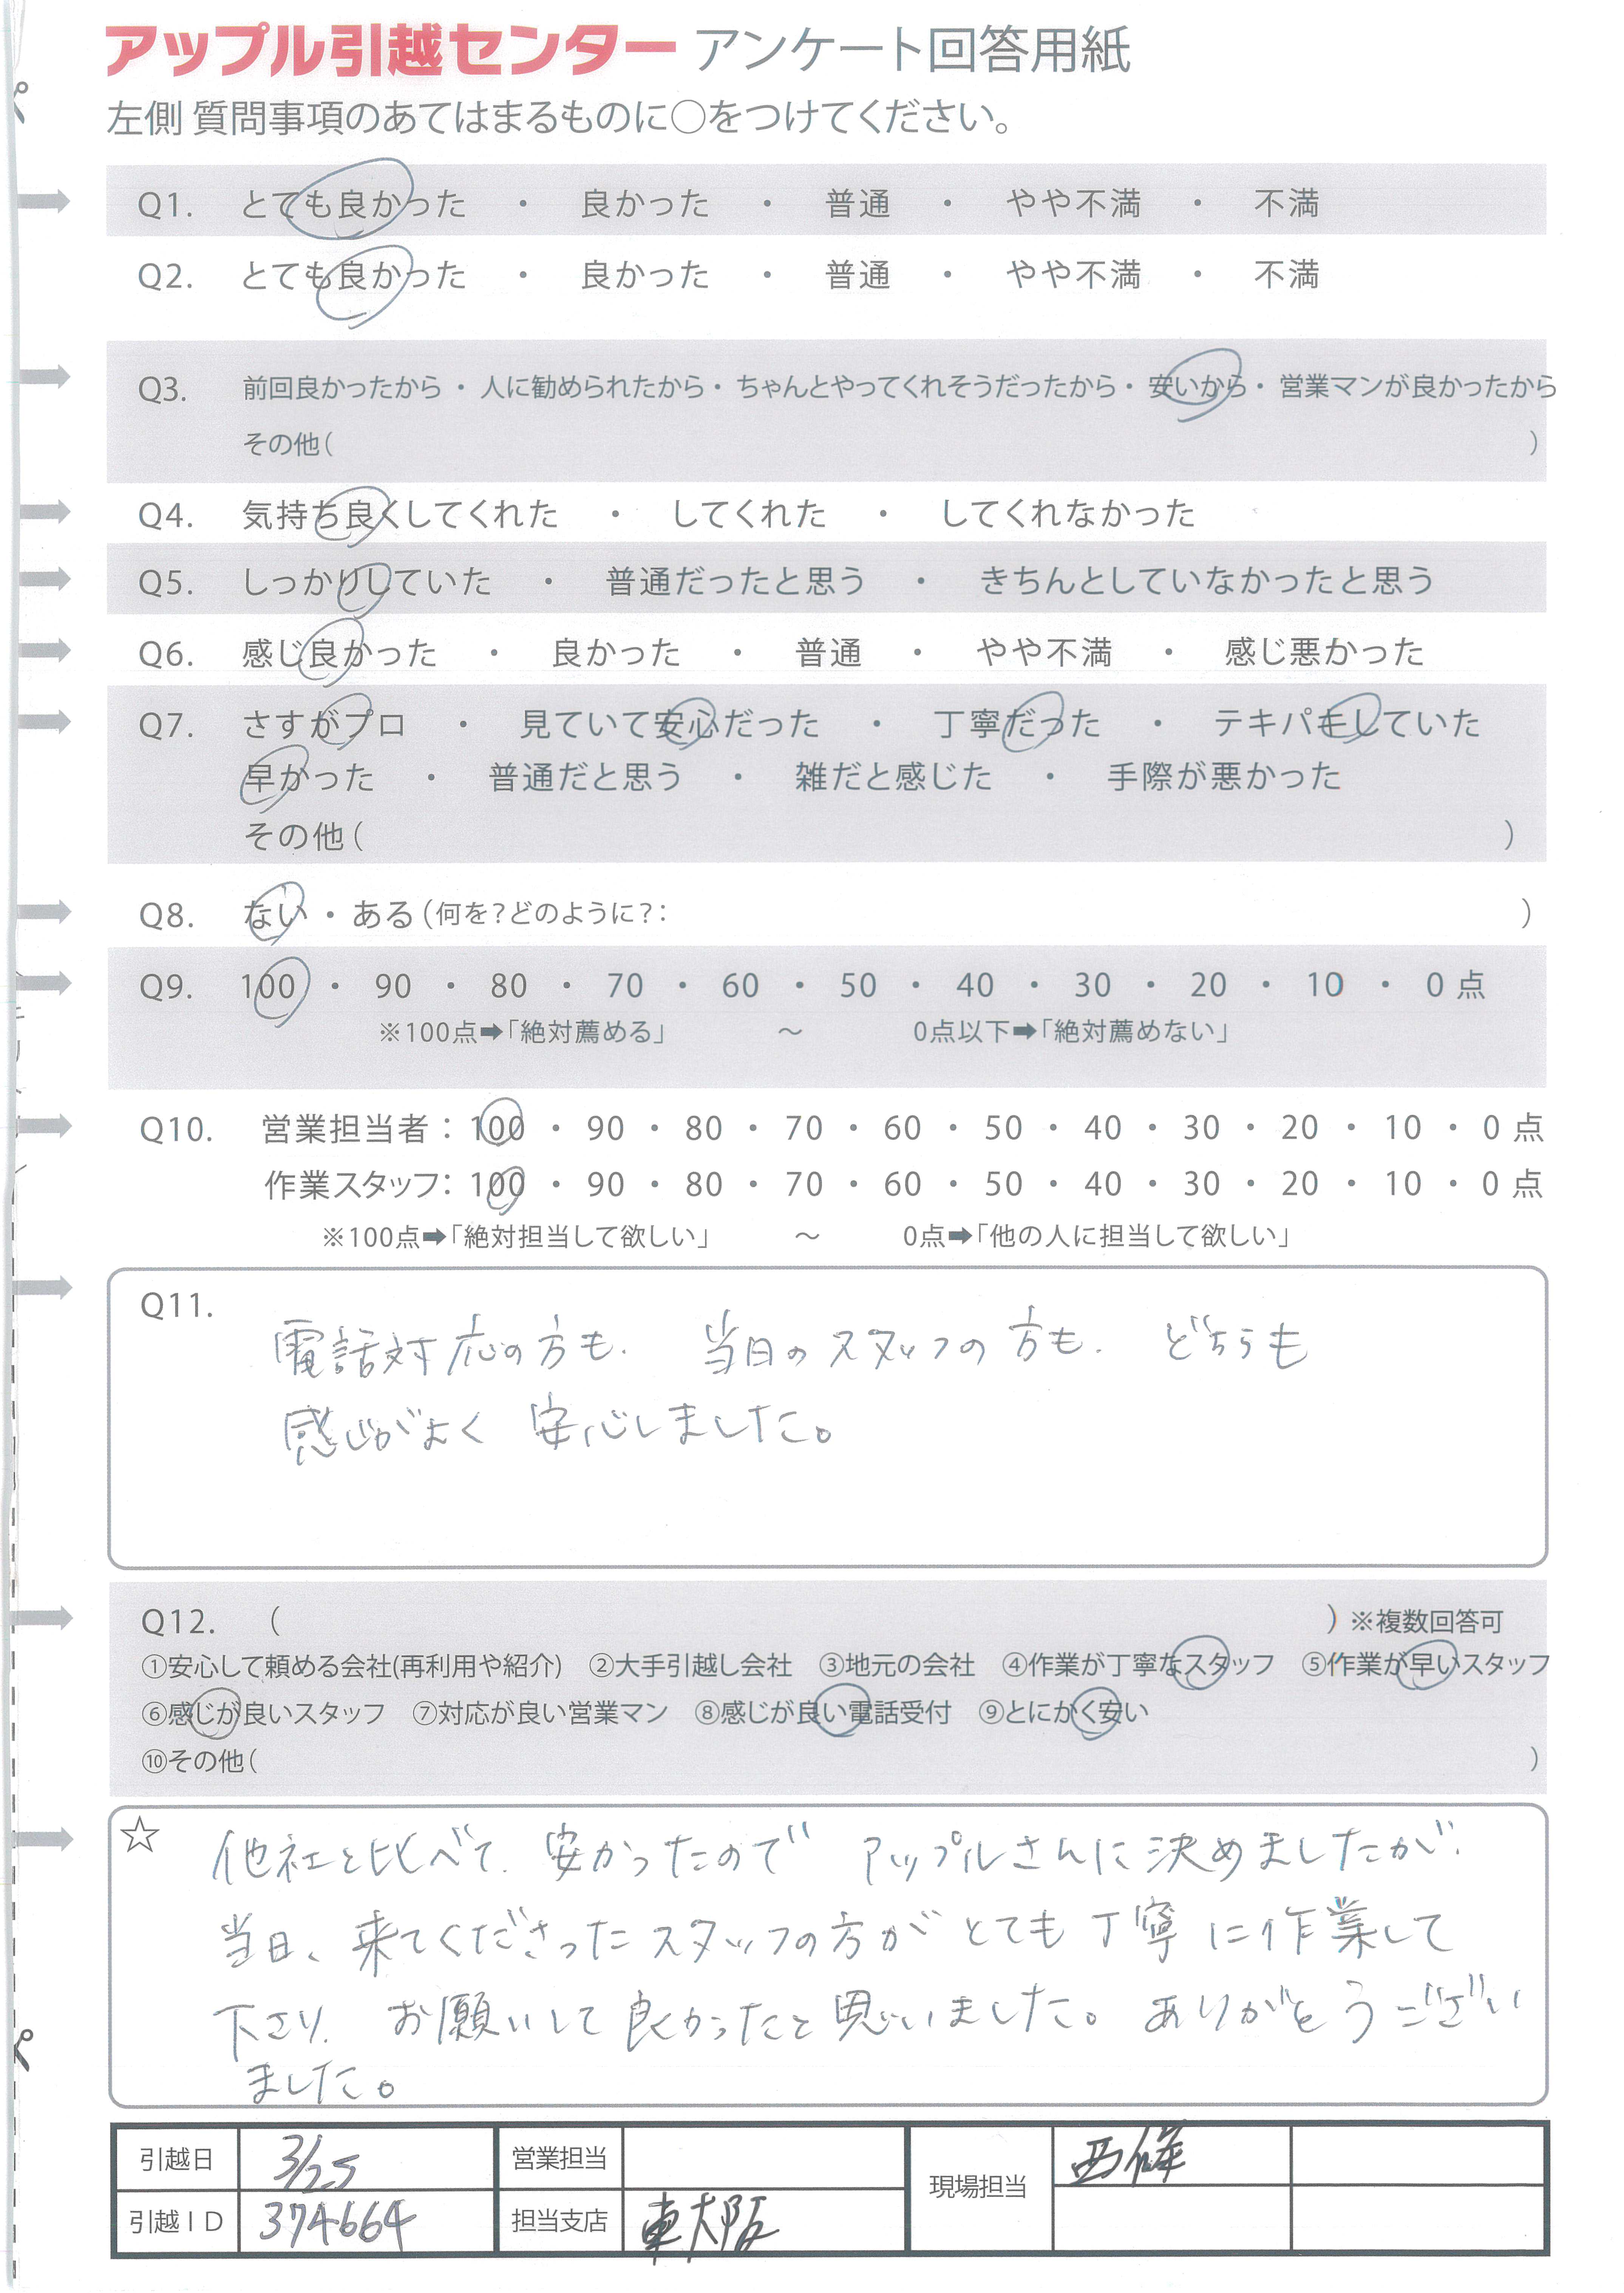 アップル引越センター アンケート回答用紙
左側 質問事項のあてはまるものに○をつけてください。
Q1. とても良かった ・ 良かった ・ 普通 ・ やや不満 ・ 不満
Q2. とても良かった ・ 良かった ・ 普通 ・ やや不満 ・ 不満
Q3. 前回良かったから ・ 人に勧められたから ・ ちゃんとやってくれそうだったから ・ 安いから ・ 営業マンが良かったから
その他( )
Q4. 気持ち良くしてくれた ・ してくれた ・ してくれなかった
Q5. しっかりしていた ・ 普通だったと思う ・ きちんとしていなかったと思う
Q6. 感じ良かった ・ 良かった ・ 普通 ・ やや不満 ・ 感じ悪かった
Q7. さすがプロ ・ 見ていて安心だった ・ 丁寧だった ・ テキパキしていた
早かった ・ 普通だと思う ・ 雑だと感じた ・ 手際が悪かった
その他( )
Q8. ない ・ ある(何を?どのように?: )
Q9. 100 ・ 90 ・ 80 ・ 70 ・ 60 ・ 50 ・ 40 ・ 30 ・ 20 ・ 10 ・ 0 点
※100点➡「絶対薦める」 〜 0点以下➡「絶対薦めない」
Q10. 営業担当者: 100 ・ 90 ・ 80 ・ 70 ・ 60 ・ 50 ・ 40 ・ 30 ・ 20 ・ 10 ・ 0 点
作業スタッフ: 100 ・ 90 ・ 80 ・ 70 ・ 60 ・ 50 ・ 40 ・ 30 ・ 20 ・ 10 ・ 0 点
※100点➡「絶対担当して欲しい」 〜 0点➡「他の人に担当して欲しい」
Q11.
電話対応の方も、当日のスタッフの方も、どちらも
感じがよく 安心しました。
Q12. ( ) ※複数回答可
①安心して頼める会社(再利用や紹介) ②大手引越し会社 ③地元の会社 ④作業が丁寧なスタッフ ⑤作業が早いスタッフ
⑥感じが良いスタッフ ⑦対応が良い営業マン ⑧感じが良い電話受付 ⑨とにかく安い
⑩その他( )
☆ 他社と比べて、安かったので アップルさんに決めましたが、
当日、来てくださったスタッフの方がとても丁寧に作業して
下さり、お願いして良かったと思いました。ありがとうござい
ました。
引越日 3/25 営業担当 現場担当 西條
引越ID 374664 担当支店 東大阪